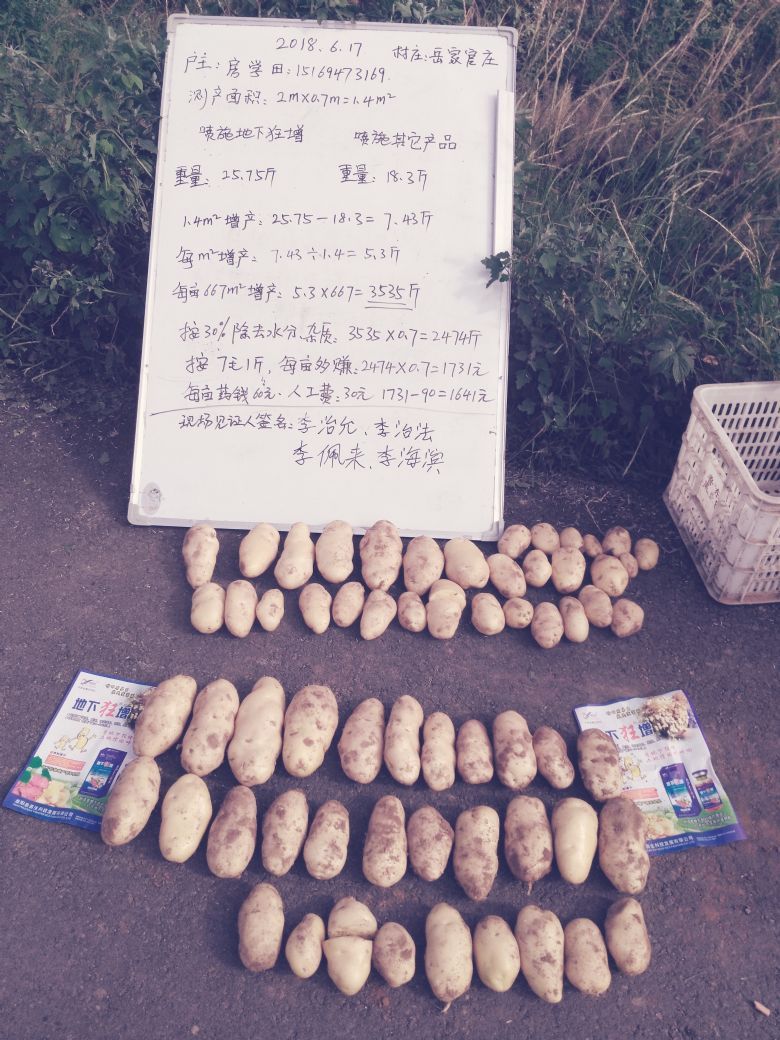 2018.6.17 村庄:岳家官庄
户主:房学田:15169473169.
测产面积:2m×0.7m=1.4m²
喷施地下狂增 喷施其它产品
重量:25.75斤 重量:18.3斤
1.4m²增产:25.75-18.3=7.43斤
每m²增产:7.43÷1.4=5.3斤
每亩667m²增产:5.3×667=3535斤
按30%除去水分、杂质:3535×0.7=2474斤
按7毛1斤,每亩多赚:2474×0.7=1731元
每亩药钱60元.人工费:30元 1731-90=1641元
现场见证人签名:李治允、李治法
李佩来、李海滨
地下狂增
地下狂